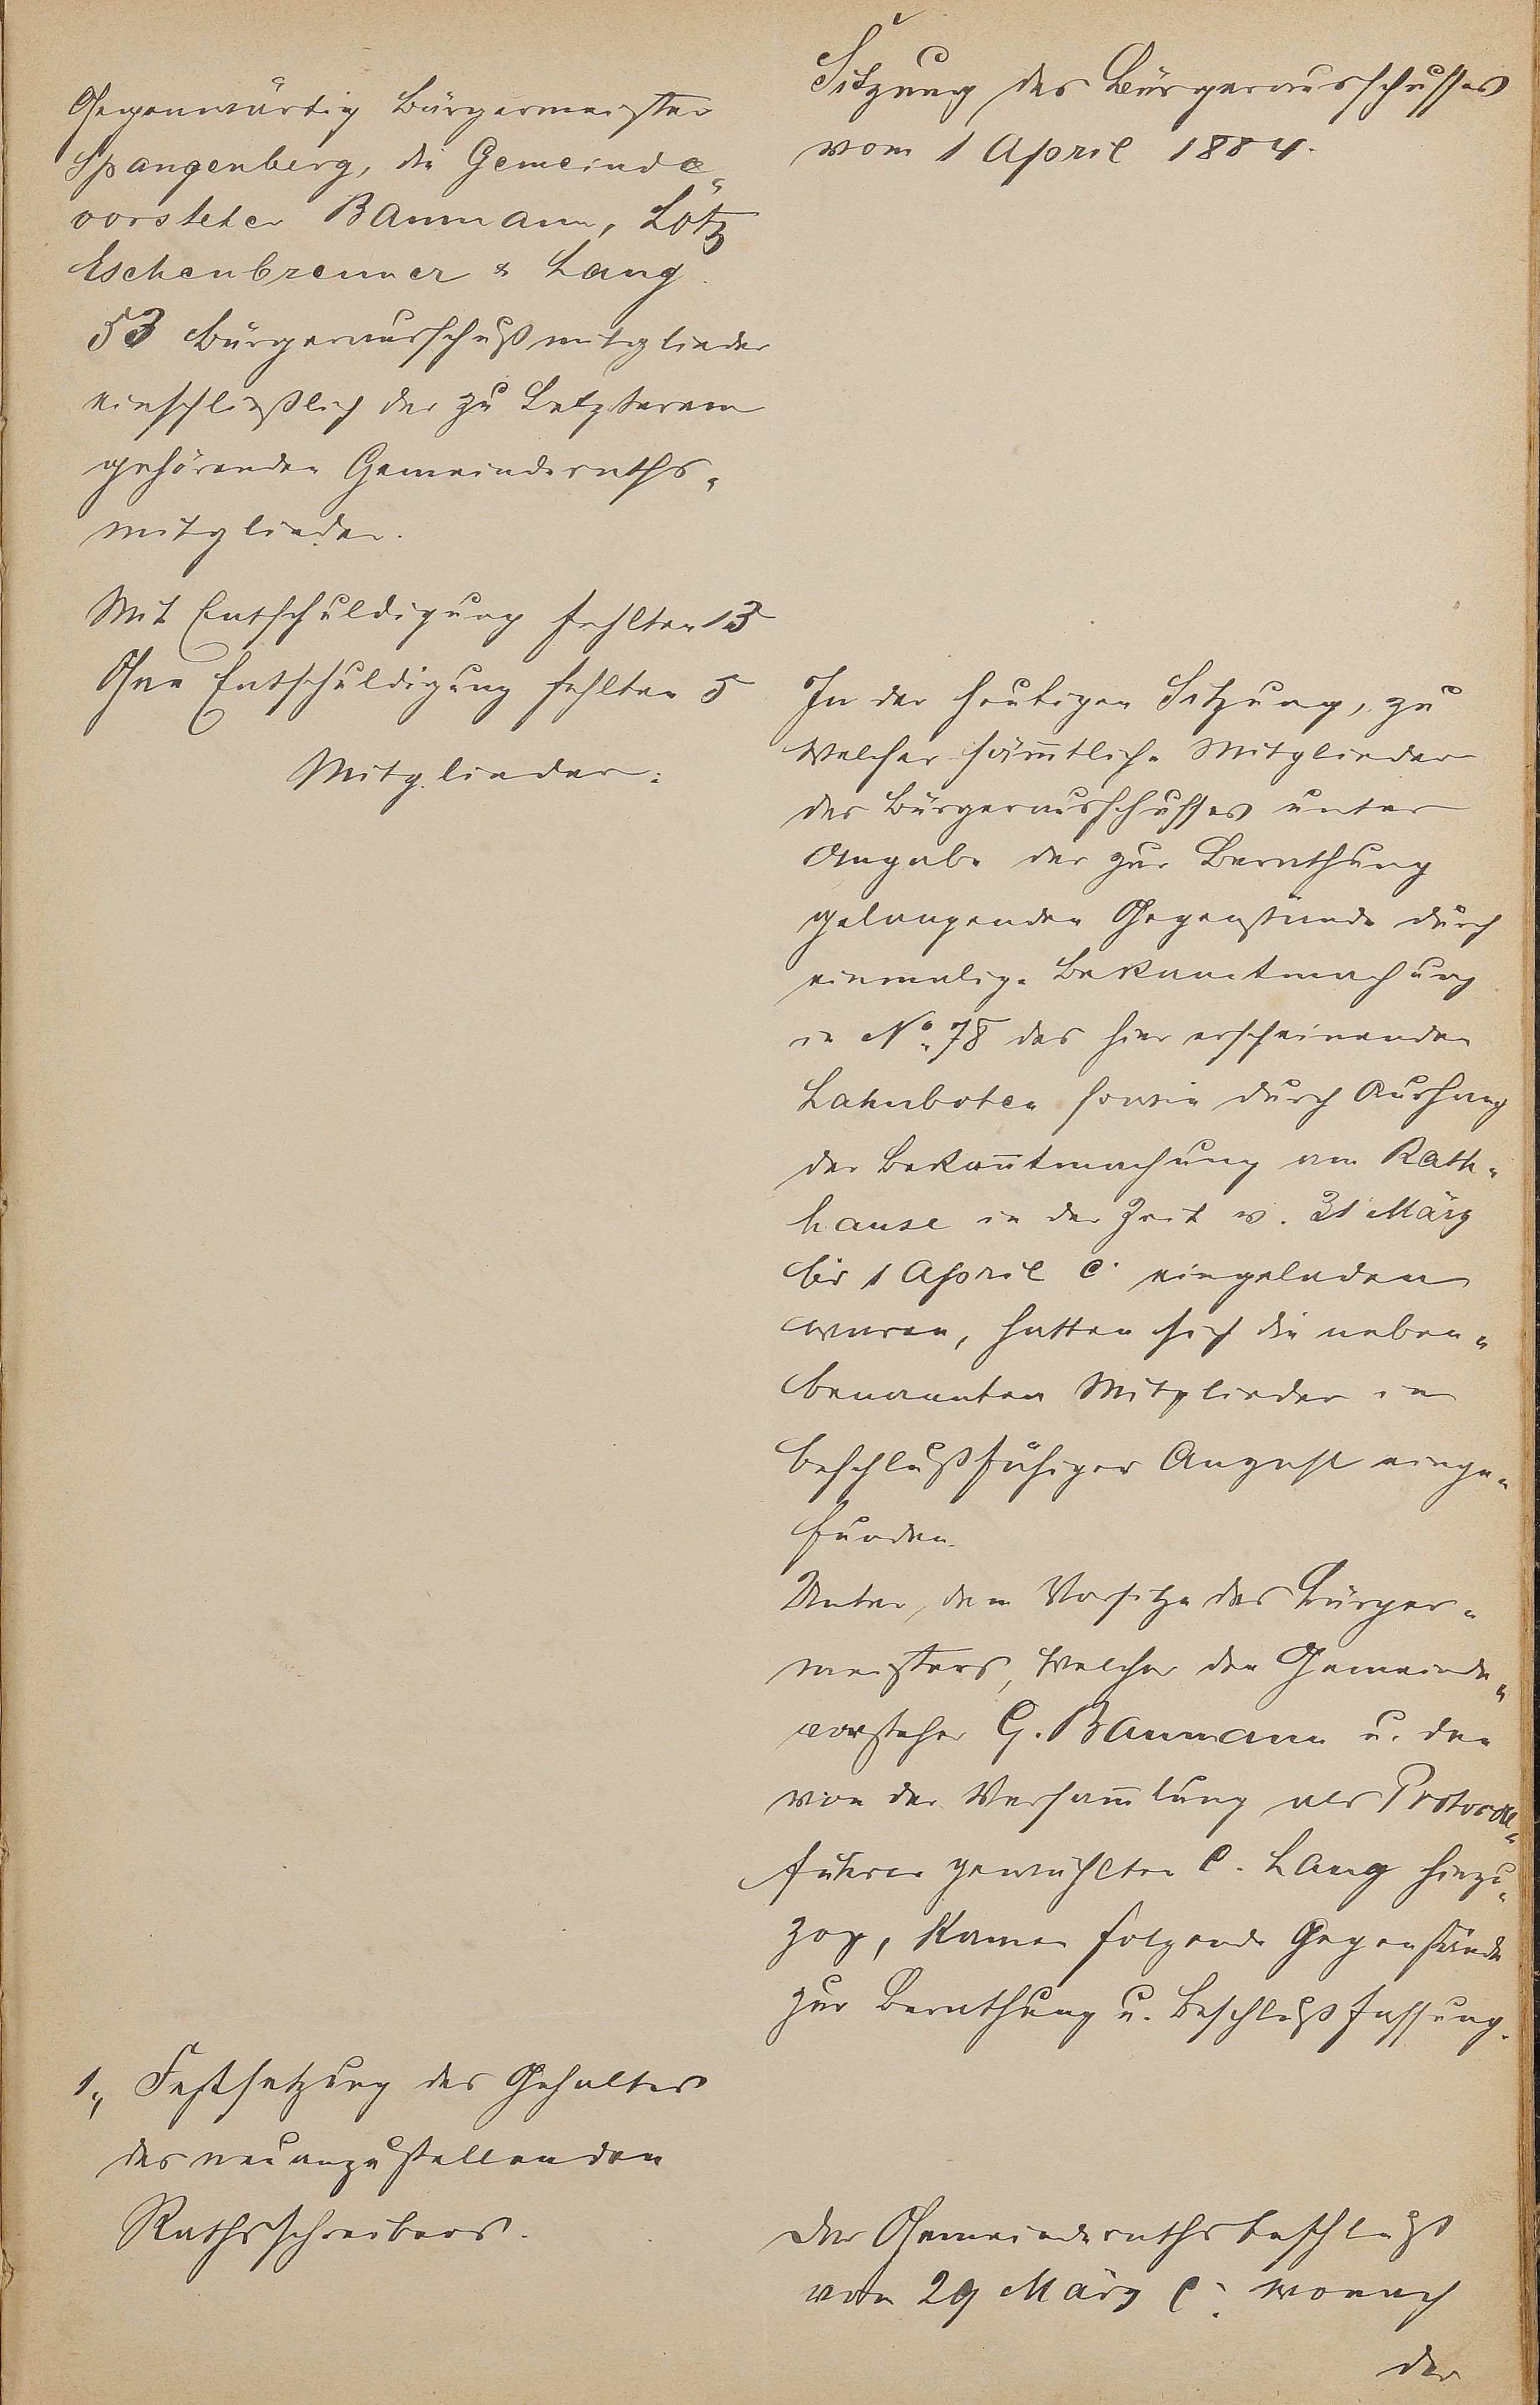 Sitzung des Bürgerausschusses
vom 1 April 1884.
Gegenwärtig Bürgermeister
Spangenberg, die Gemeinde-
vorsteher Baumann, Lotz
Eschenbrenner & Lang.
53 Bürgerausschußmitglieder
einschließlich der zu Letzterem
gehörenden Gemeinderaths-
mitglieder.
Mit Entschuldigung fehlten 13
Ohne Entschuldigung fehlten 5
Mitglieder.
In der heutigen Sitzung, zu
welcher sämtliche Mitglieder
des Bürgerausschusses unter
Angabe der zur Berathung
gelangenden Gegenstände durch
einmalige Bekanntmachung
in No. 78 des hier erscheinenden
Lahnboten sowie durch Aushang
der Bekanntmachung am Rath-
hause in der Zeit v. 31 März
bis 1 April c. eingeladen
waren, hatten sich die neben-
benannten Mitglieder in
beschlußfähiger Anzahl einge-
funden.
Unter dem Vorsitze des Bürger-
meisters, welcher den Gemeinde-
vorsteher G. Baumann u. den
von der Versammlung als Protocoll-
führer gewählten C. Lang hinzu-
zog, kamen folgende Gegenstände
zur Berathung u. Beschlußfassung.
1., Festsetzung des Gehaltes
des neuanzustellenden
Rathsschreibers.
Der Gemeinderathsbeschluß
vom 29 März c. wonach
der